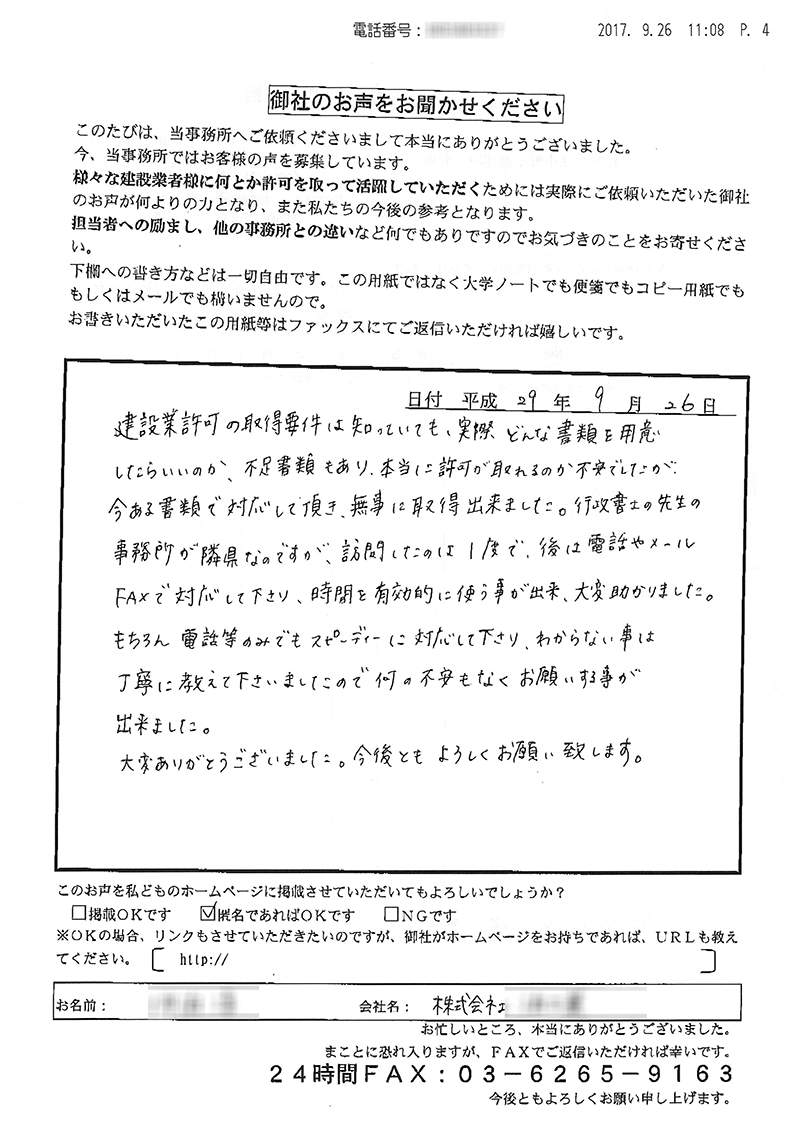 電話番号： 2017. 9.26 11:08 P. 4
御社のお声をお聞かせください
このたびは、当事務所へご依頼くださいまして本当にありがとうございました。
今、当事務所ではお客様の声を募集しています。
様々な建設業者様に何とか許可を取って活躍していただくためには実際にご依頼いただいた御社
のお声が何よりの力となり、また私たちの今後の参考となります。
担当者への励まし、他の事務所との違いなど何でもありですのでお気づきのことをお寄せくださ
い。
下欄への書き方などは一切自由です。この用紙ではなく大学ノートでも便箋でもコピー用紙でも
もしくはメールでも構いませんので。
お書きいただいたこの用紙等はファックスにてご返信いただければ嬉しいです。
日付 平成 29 年 9 月 26 日
建設業許可の取得要件は知っていても、実際 どんな書類を用意
したらいいのか、不足書類もあり、本当に許可が取れるのか不安でしたが、
今ある書類で対応して頂き、無事に取得出来ました。行政書士の先生の
事務所が隣県なのですが、訪問したのは1度で、後は電話やメール
FAXで対応して下さり、時間を有効的に使う事が出来、大変助かりました。
もちろん 電話等のみでもスピーディーに対応して下さり、わからない事は
丁寧に教えて下さいましたので何の不安もなくお願いする事が
出来ました。
大変ありがとうございました。今後とも よろしくお願い致します。
このお声を私どものホームページに掲載させていただいてもよろしいでしょうか？
□掲載ＯＫです ☑匿名であればＯＫです □ＮＧです
※ＯＫの場合、リンクもさせていただきたいのですが、御社がホームページをお持ちであれば、ＵＲＬも教え
てください。 ［ http:// ］
お名前： 会社名： 株式会社
お忙しいところ、本当にありがとうございました。
まことに恐れ入りますが、ＦＡＸでご返信いただければ幸いです。
２４時間ＦＡＸ：０３－６２６５－９１６３
今後ともよろしくお願い申し上げます。